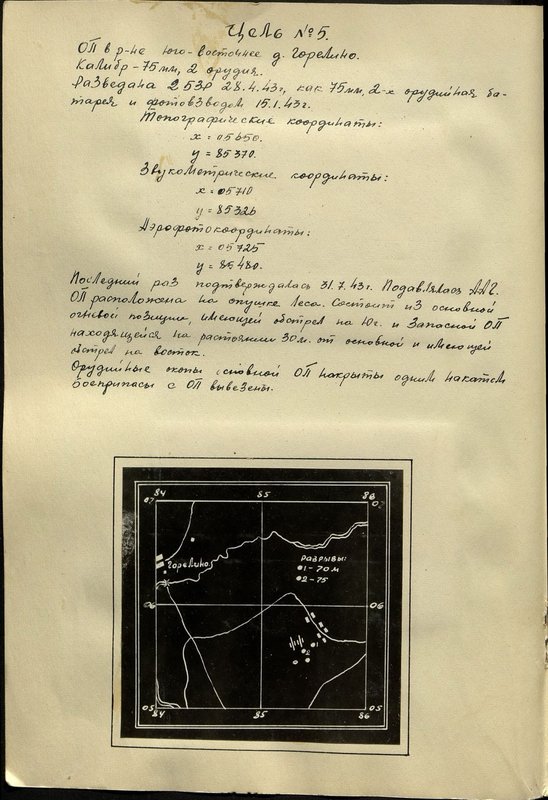 Цель №5.
ОП в р-не юго-восточнее д. Горелино.
Калибр - 75мм, 2 орудия.
Разведана 253Р 28.4.43г, как 75мм, 2-х орудийная ба-
тарея и фотовзводом 15.1.43г.
Топографические координаты:
x = 05650.
y = 85370.
Звукометрические координаты:
x = 05710
y = 85326
Аэрофотокоординаты:
x = 05725
y = 85480.
Последний раз подтверждалась 31.7.43г. Подавлялась ААГ.
ОП расположена на опушке леса. Состоит из основной
огневой позиции, имеющей обстрел на Юг. и Запасной ОП
находящейся на растоянии 30м. от основной и имеющей
обстрел на восток.
Орудийные окопы основной ОП накрыты одним накатом
боеприпасы с ОП вывезены.
84 85 86
07 0
Горелино.
Разрывы:
1-70м
2-75
06 06
1
2
05 05
84 85 86